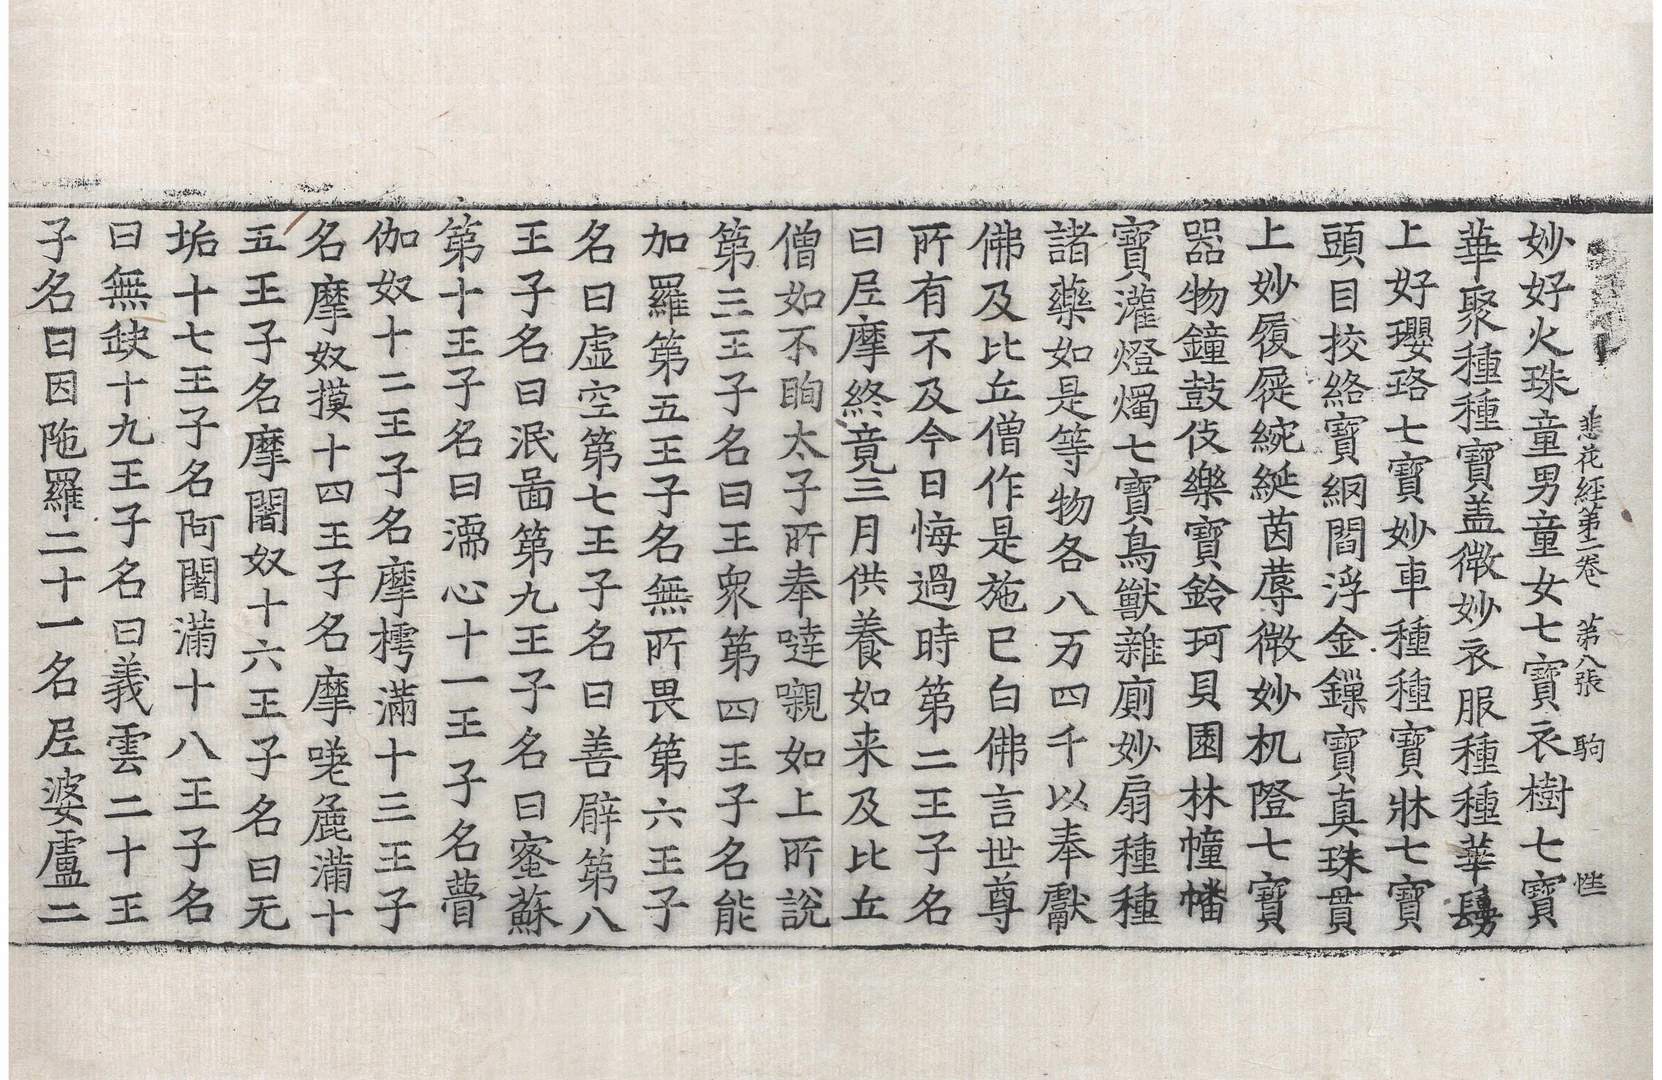 悲花經第二卷 第八張 駒 性
妙好火珠童男童女七寶衣樹七寶
華聚種種寶盖微妙衣服種種華鬘
上好瓔珞七寶妙車種種寶牀七寶
頭目挍絡寶網閻浮金鏁寶真珠貫
上妙履屣綩綖茵蓐微妙机隥七寶
器物鐘鼓伎樂寶鈴珂貝園林幢幡
寶灌燈燭七寶鳥獸雜廁妙扇種種
諸藥如是等物各八万四千以奉獻
佛及比丘僧作是施已白佛言世尊
所有不及今日悔過時第二王子名
曰尼摩終竟三月供養如来及比丘
僧如不眴太子所奉噠嚫如上所說
第三王子名曰王衆第四王子名能
加羅第五王子名無所畏第六王子
名曰虛空第七王子名曰善臂第八
王子名曰泯啚第九王子名曰蜜蘇
第十王子名曰濡心十一王子名瞢
伽奴十二王子名摩樗滿十三王子
名摩奴摸十四王子名摩嗟麁滿十
五王子名摩闍奴十六王子名曰无
垢十七王子名阿闍滿十八王子名
曰無缺十九王子名曰義雲二十王
子名曰因陁羅二十一名尼婆盧二